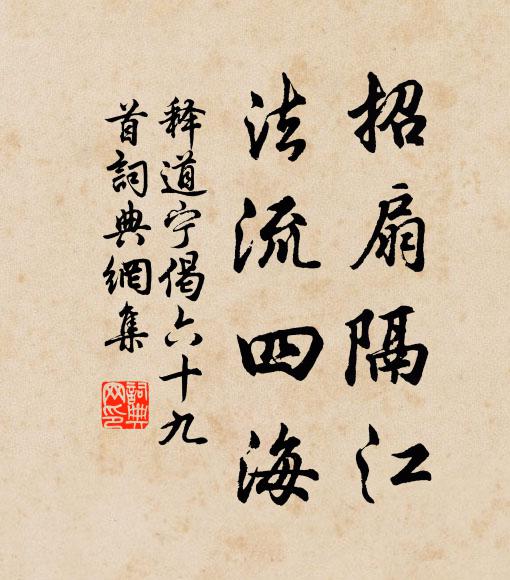 招扇隔江
法流四海
释道宁偈六十九
首詞典網集
詞典
网印